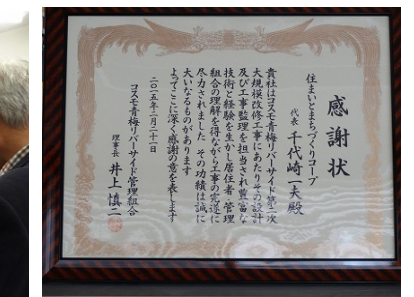 感謝状
住まいとまちづくりコープ
代表 千代崎一夫殿
貴社はコスモ青梅リバーサイド第二次
大規模改修工事にあたりその設計
及び工事監理を担当され豊富な
技術と経験を生かし居住者 管理
組合の理解を得ながら工事の完遂に
尽力されました その功績は誠に
大いなるものがあります
よってここに深く感謝の意を表します
二〇一五年二月二十一日
コスモ青梅リバーサイド管理組合
理事長 井上慎二